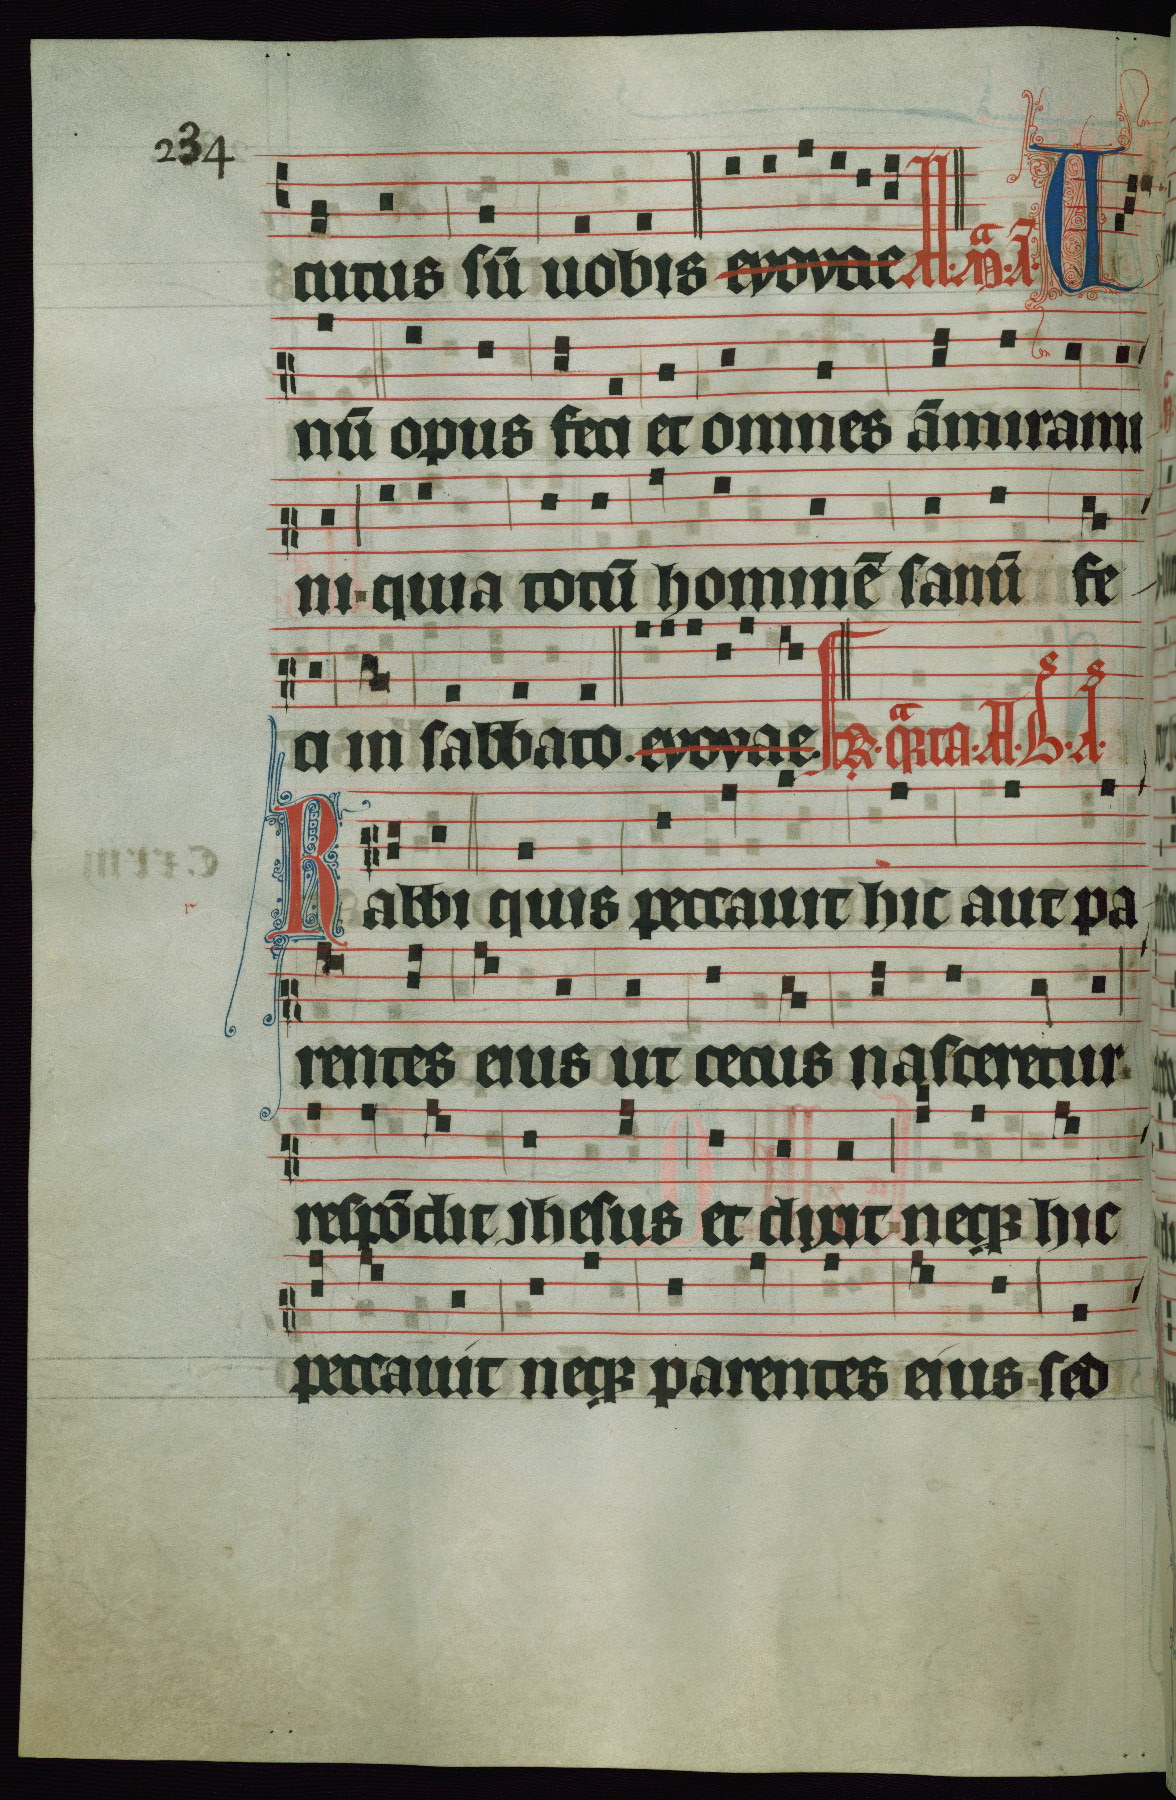 234
cutus sū uobis euouae A. M. A. U
nū opus feci et omnes āmirami
ni · quia totū hominē sanū fe
ci in sabbato · euouae fr̄ qrta · A · B · A ·
Rabbi quis peccauit hic aut pa
rentes eius ut cecus nasceretur ·
respōdit ihesus et dixit · neqꝫ hic
peccauit neqꝫ parentes eius · sed